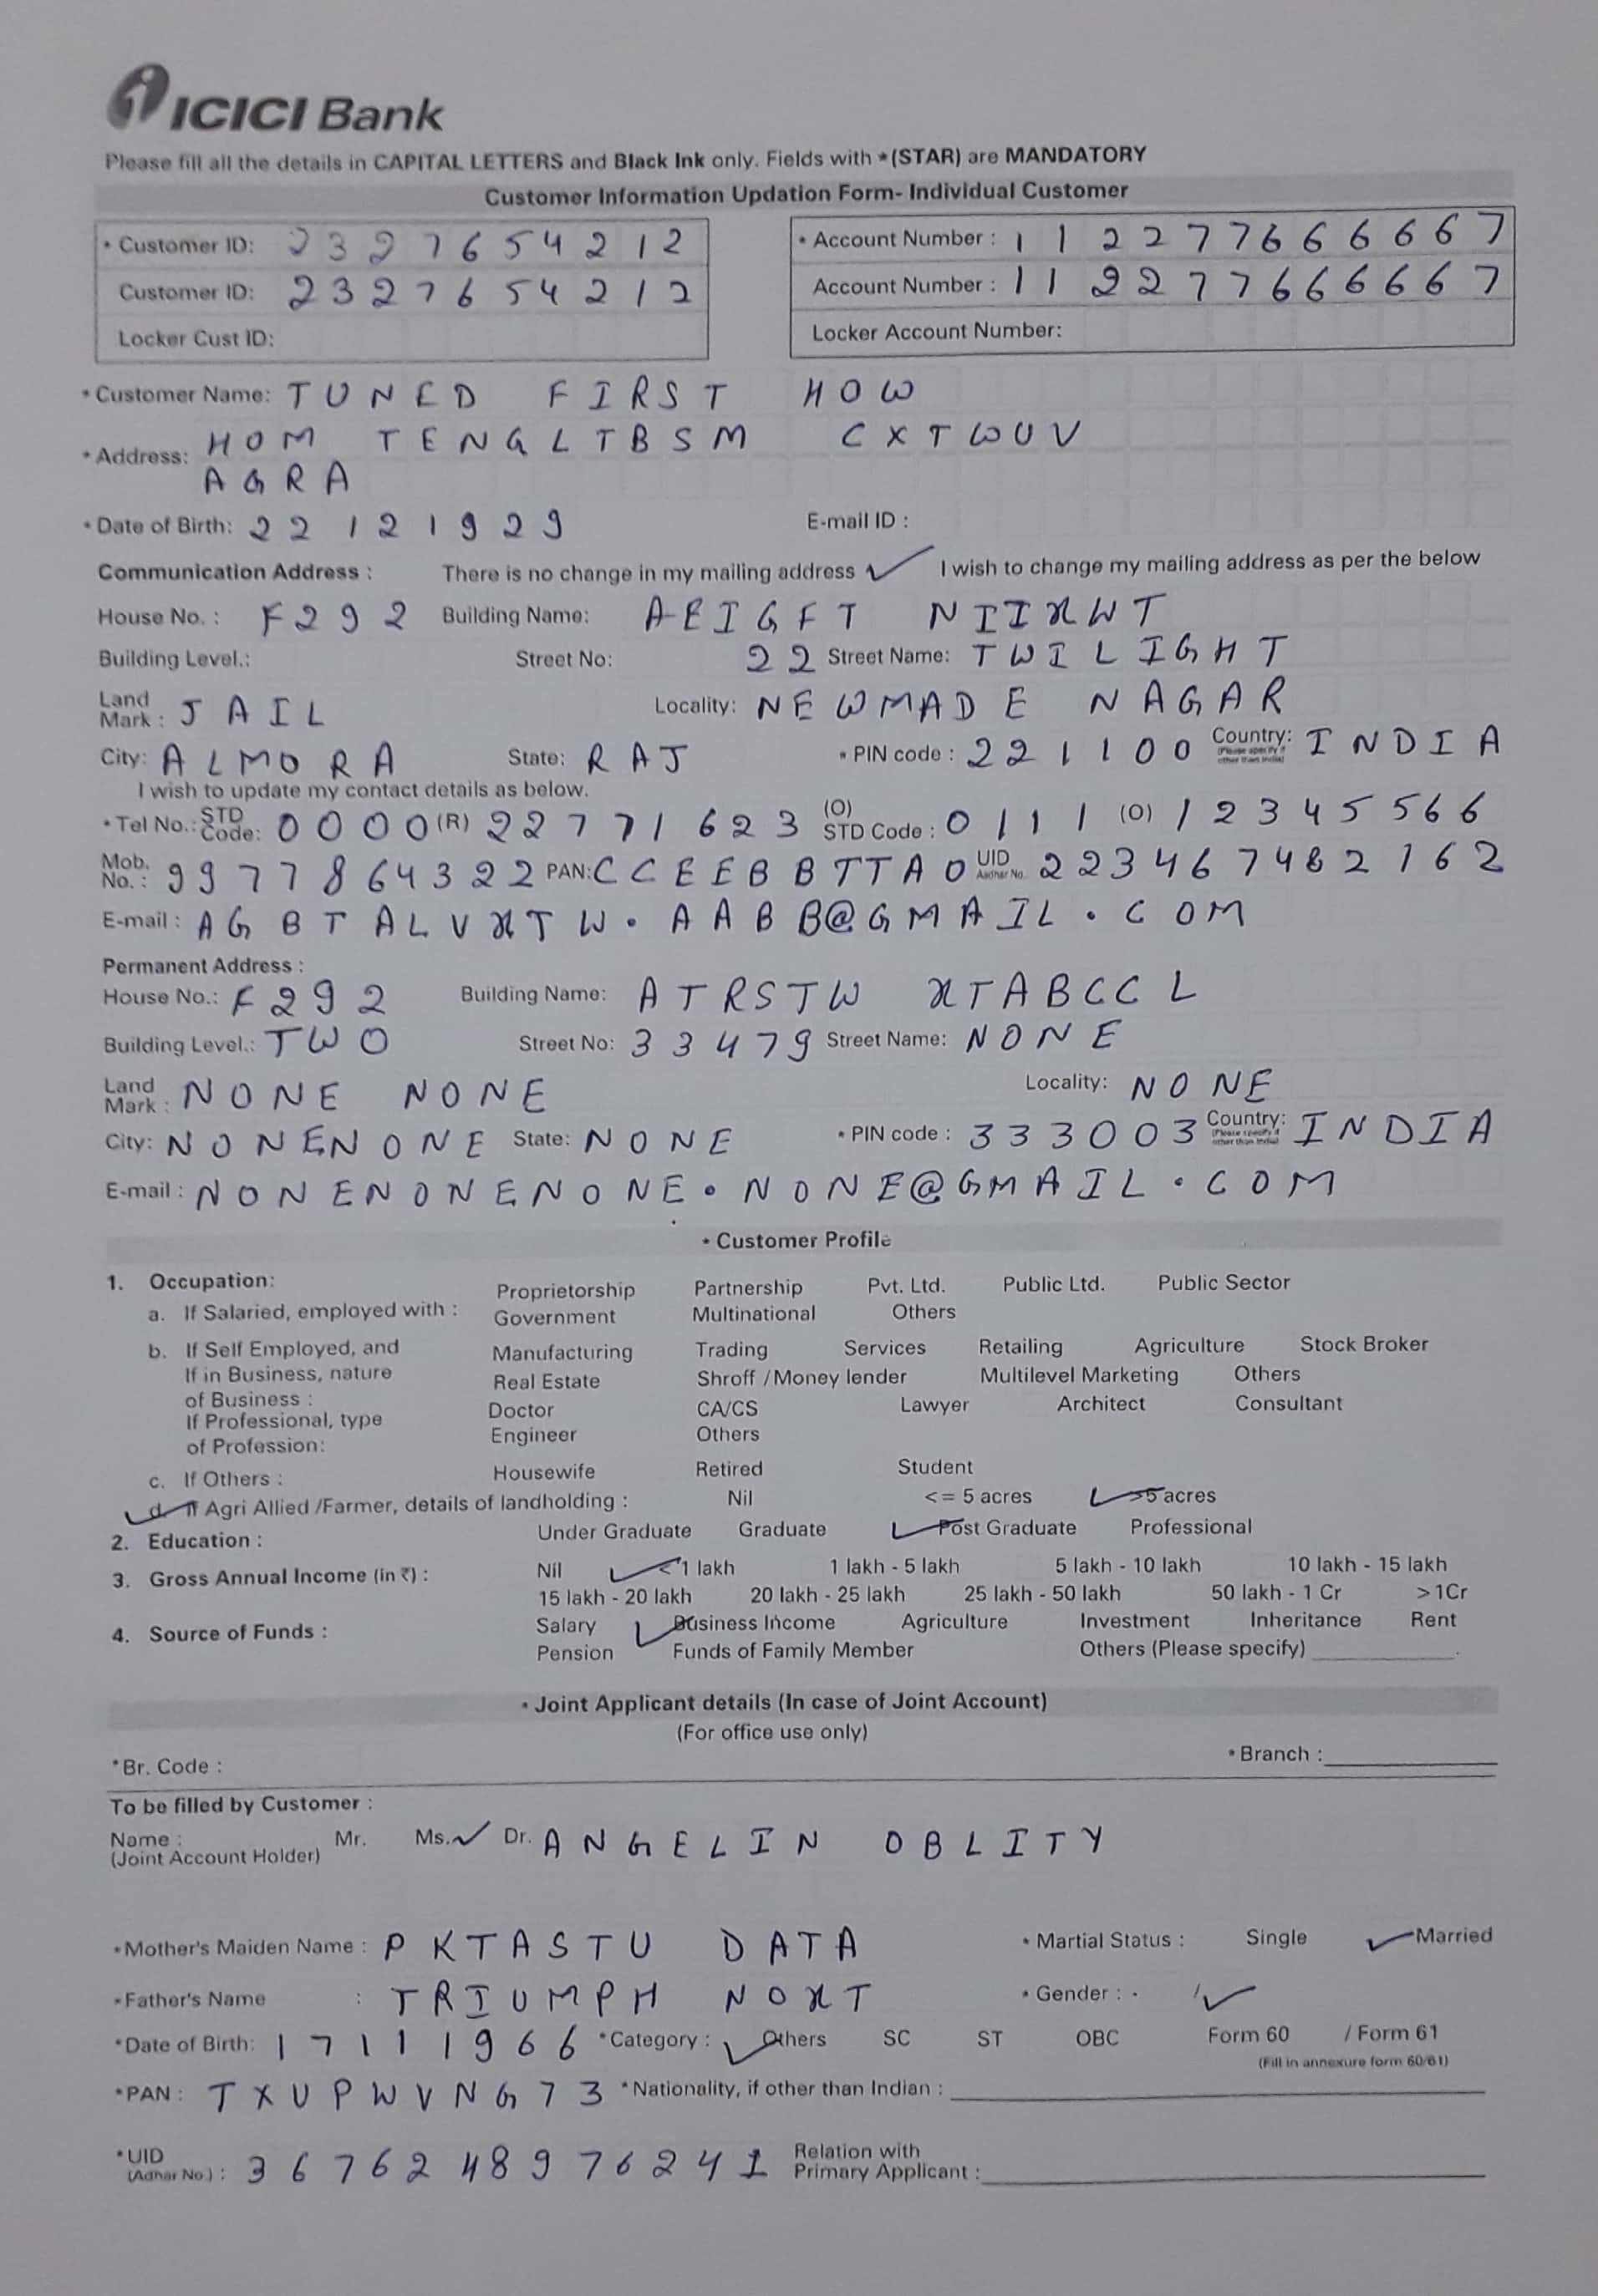 ICICI Bank
Please fill all the details in CAPITAL LETTERS and Black Ink only. Fields with *(STAR) are MANDATORY
Customer Information Updation Form- Individual Customer
* Customer ID: 2327654212 * Account Number : 112277666667
Customer ID: 2327654212 Account Number : 112277666667
Locker Cust ID: Locker Account Number:
* Customer Name: TUNED FIRST HOW
* Address: HOM TENGLTBSM CXTWUV
AGRA
* Date of Birth: 22121929 E-mail ID :
Communication Address : There is no change in my mailing address ✓ I wish to change my mailing address as per the below
House No. : F292 Building Name: AEIGFT NIIXWT
Building Level.: Street No: 22 Street Name: TWILIGHT
Land Mark : JAIL Locality: NEWMADE NAGAR
City: ALMORA State: RAJ * PIN code : 221100 Country: (Please specify if other than India) INDIA
I wish to update my contact details as below.
* Tel No.: STD Code: 0000 (R) 22771623 (O) STD Code : 0111 (O) 12345566
Mob. No. : 9977864322 PAN: CCEEBBTTAO UID Aadhar No. 223467482162
E-mail : AGBTALVXTW.AABB@GMAIL.COM
Permanent Address :
House No.: F292 Building Name: ATRSTW XTABCCL
Building Level.: TWO Street No: 33479 Street Name: NONE
Land Mark : NONE NONE Locality: NONE
City: NONENONE State: NONE * PIN code : 333003 Country: (Please specify if other than India) INDIA
E-mail : NONENONENONE.NONE@GMAIL.COM
* Customer Profile
1. Occupation:
a. If Salaried, employed with : Proprietorship Partnership Pvt. Ltd. Public Ltd. Public Sector
Government Multinational Others
b. If Self Employed, and If in Business, nature of Business : Manufacturing Trading Services Retailing Agriculture Stock Broker
Real Estate Shroff /Money lender Multilevel Marketing Others
If Professional, type of Profession: Doctor CA/CS Lawyer Architect Consultant
Engineer Others
c. If Others : Housewife Retired Student
✓ d. If Agri Allied /Farmer, details of landholding : Nil <= 5 acres ✓ >5 acres
2. Education : Under Graduate Graduate ✓ Post Graduate Professional
3. Gross Annual Income (in ₹) : Nil ✓ <1 lakh 1 lakh - 5 lakh 5 lakh - 10 lakh 10 lakh - 15 lakh
15 lakh - 20 lakh 20 lakh - 25 lakh 25 lakh - 50 lakh 50 lakh - 1 Cr >1Cr
4. Source of Funds : Salary ✓ Business Income Agriculture Investment Inheritance Rent
Pension Funds of Family Member Others (Please specify)
* Joint Applicant details (In case of Joint Account)
(For office use only)
*Br. Code : * Branch :
To be filled by Customer :
Name : (Joint Account Holder) Mr. Ms. ✓ Dr. ANGELIN OBLITY
*Mother's Maiden Name : PKTASTU DATA * Martial Status : Single ✓ Married
*Father's Name : TRIUMPH NOXT * Gender : ✓
*Date of Birth: 17111966 *Category : ✓ Others SC ST OBC Form 60 / Form 61
(Fill in annexure form 60/61)
*PAN : TXUPWVNG73 *Nationality, if other than Indian :
*UID (Adhar No.) : 3676248976241 Relation with Primary Applicant :